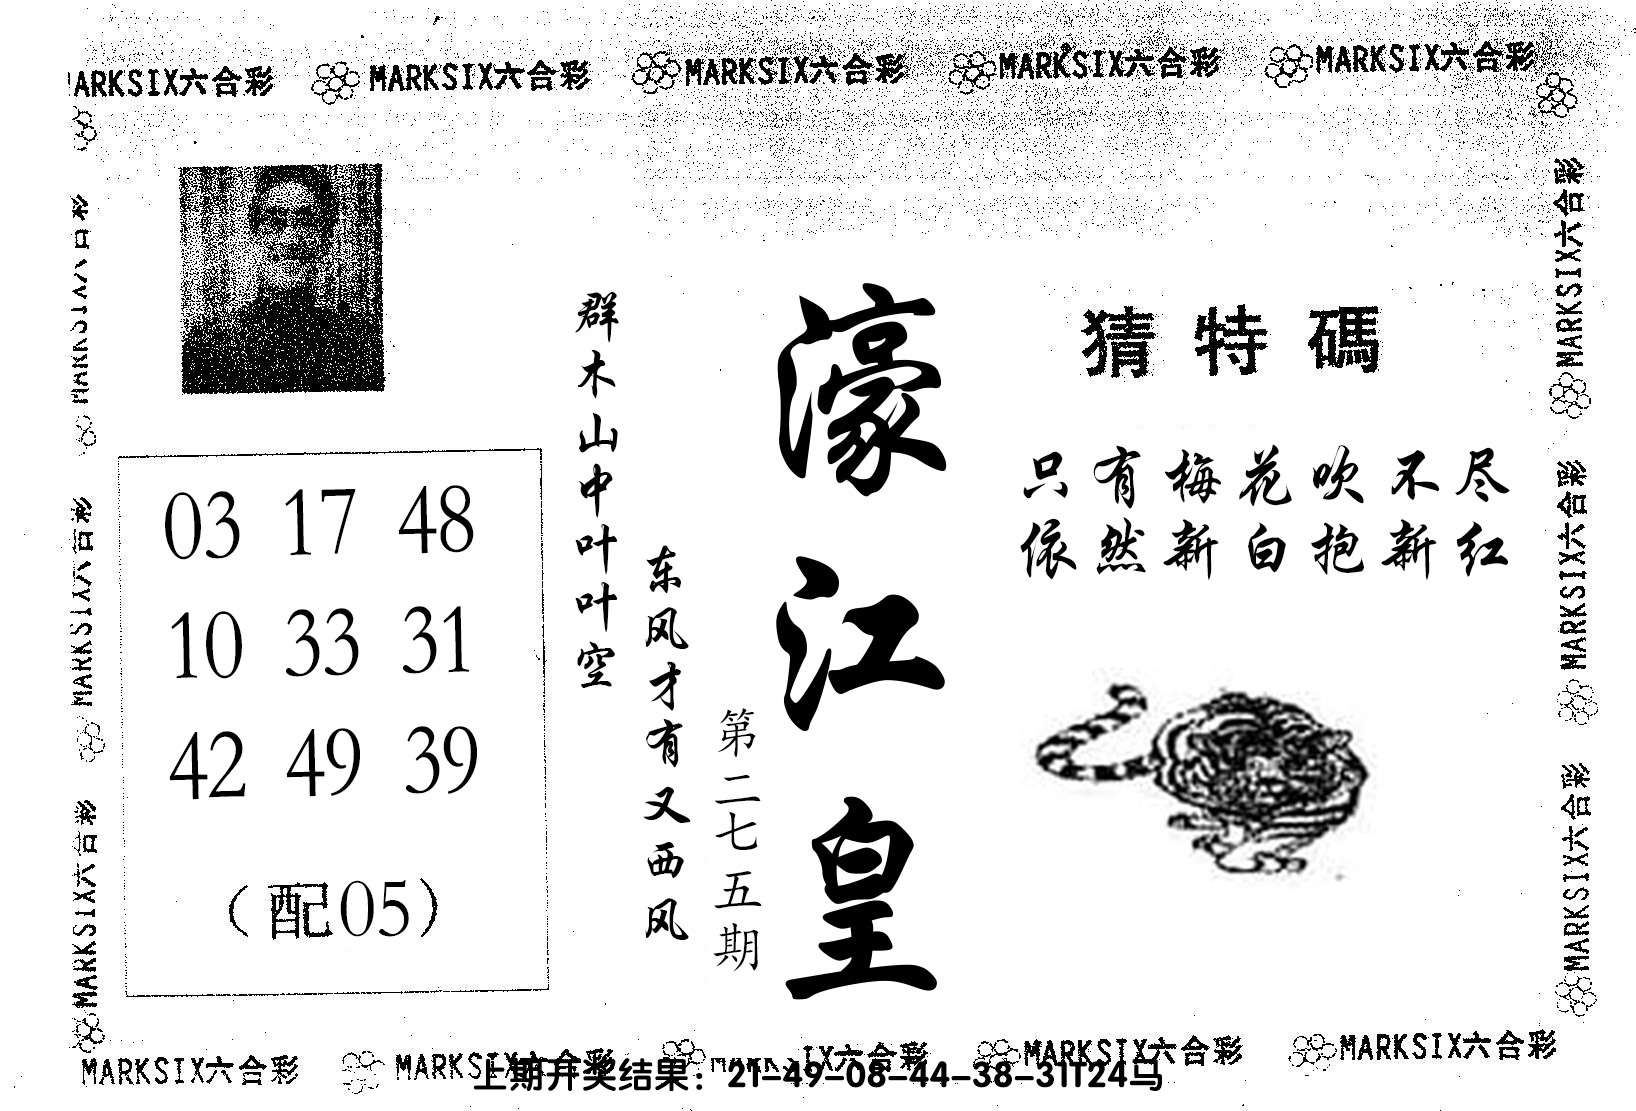 MARKSIX六合彩 MARKSIX六合彩 MARKSIX六合彩 MARKSIX六合彩 MARKSIX六合彩
猜特碼
只有梅花吹不尽
依然新白抱新红
濠江皇
第二七五期
东风才有又西风
群木山中叶叶空
03 17 48
10 33 31
42 49 39
（配05）
MARKSIX六合彩
MARKSIX六合彩
MARKSIX六合彩
MARKSIX六合彩
MARKSIX六合彩
MARKSIX六合彩
MARKSIX六合彩 MARKSIX六合彩 MARKSIX六合彩 MARKSIX六合彩 MARKSIX六合彩
上期开奖结果：21-49-08-44-38-31T24马